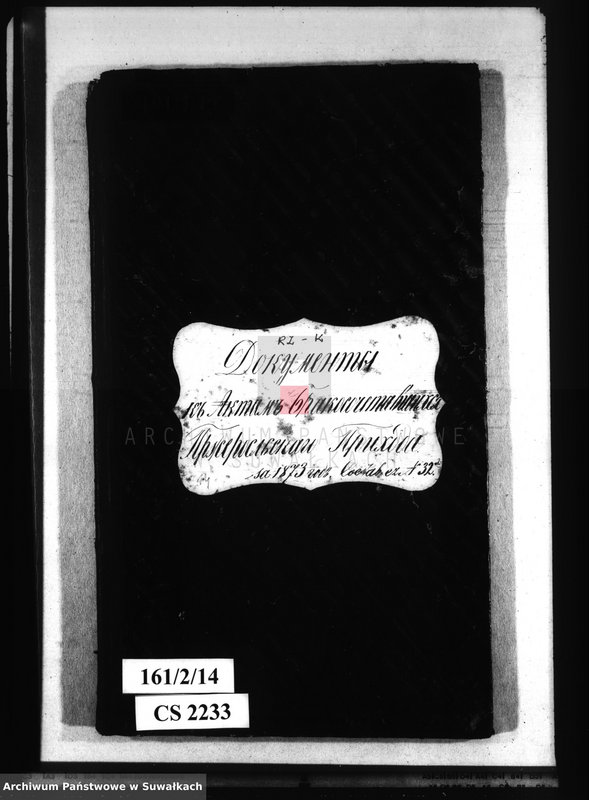 RI - K
Документы
къ Актамъ бракосочетавшихся
Прихода
за 1873 годъ N 32
ARCHIWUM PAŃSTWOWE
161/2/14
CS 2233
Archiwum Państwowe w Suwałkach